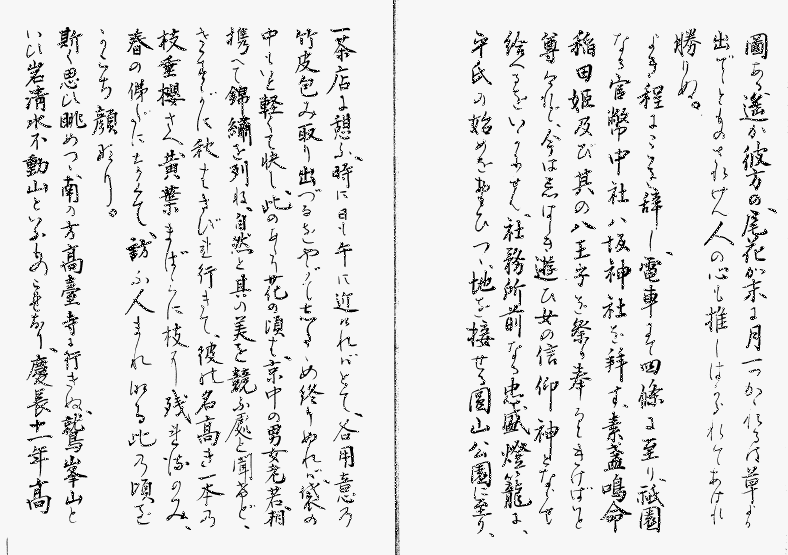 圖ある遙か彼方の、尾花が末に月一つかゝれるは草より
出でしとものされけん人の心も推しはかられてあはれ
勝りぬ。
よき程にこそと辭し、電車にて四條に至り祇園
なる官幣中社八坂神社を拜す、素盞鳴命
稲田姫及び其の八王子を祭り奉るときけばいと
尊けれど、今は忌はしき遊び女の信仰神となむ
給へるをいかにせむ、社務所前なる忠盛燈籠に、
平氏の始めをおもひつゝ地を接せる圓山公園に至り、
一茶店に憩ふ、時に日も午に近ければとて、各用意の
竹皮包み取り出づるもをかし、しるため終りぬれば、袋の
中もいと軽くて快し、此のあたり花の頃は、京中の男女老若相
携へて錦繡を列ね、自然と其の美を競ふ處と聞けど、
さすがに秋はさびれ行きて、彼の名高き一本の
枝垂櫻さへ黄葉まばらに枝に残れるのみ、
春の俤だになくて、訪ふ人まれなる此の頃を
かこち顔なり。
斯く思ひ眺めつゝ南の方高臺寺に行きぬ、鷲峯山と
いひ岩清水不動山といふもこゝなり、慶長十一年高